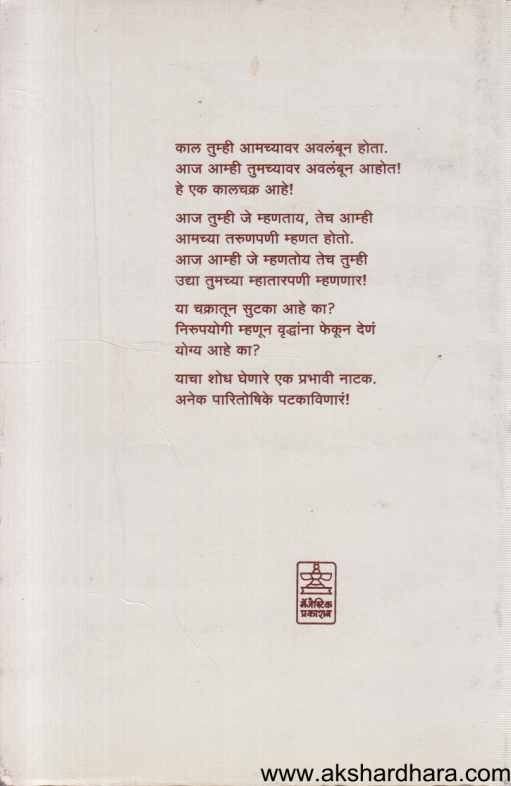 काल तुम्ही आमच्यावर अवलंबून होता.
आज आम्ही तुमच्यावर अवलंबून आहोत!
हे एक कालचक्र आहे!
आज तुम्ही जे म्हणताय, तेच आम्ही
आमच्या तरुणपणी म्हणत होतो.
आज आम्ही जे म्हणतोय तेच तुम्ही
उद्या तुमच्या म्हातारपणी म्हणणार!
या चक्रातून सुटका आहे का?
निरुपयोगी म्हणून वृद्धांना फेकून देणं
योग्य आहे का?
याचा शोध घेणारे एक प्रभावी नाटक.
अनेक पारितोषिके पटकाविणारं!
मॅजेस्टिक
प्रकाशन
www.akshardhara.com